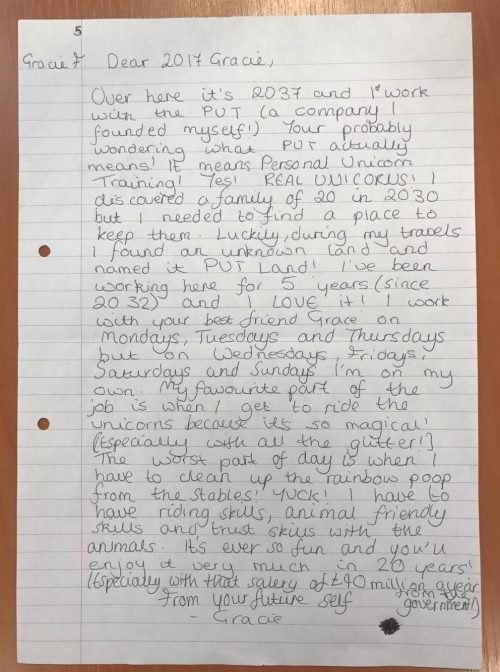 5
Gracie F Dear 2017 Gracie,
Over here it's 2037 and I work
with the PUT (a company I
founded myself!) Your probably
wondering what PUT actually
means! It means Personal Unicorn
Training! Yes! REAL UNICORNS! I
discovered a family of 20 in 2030
but I needed to find a place to
keep them. Luckily, during my travels
I found an unknown land and
named it PUT Land! I've been
working here for 5 years (since
2032) and I LOVE it! I work
with your best friend Grace on
Mondays, Tuesdays and Thursdays
but on Wednesdays, Fridays,
Saturdays and Sundays I'm on my
own. My favourite part of the
job is when I get to ride the
unicorns because it's so magical!
(Especially with all the glitter!)
The worst part of day is when I
have to clean up the rainbow poop
from the stables! YUCK! I have to
have riding skills, animal friendly
skills and trust skills with the
animals. It's ever so fun and you'll
enjoy it very much in 20 years!
(Especially with that salery of £40 million a year
from the
government!)
From your future self
- Gracie